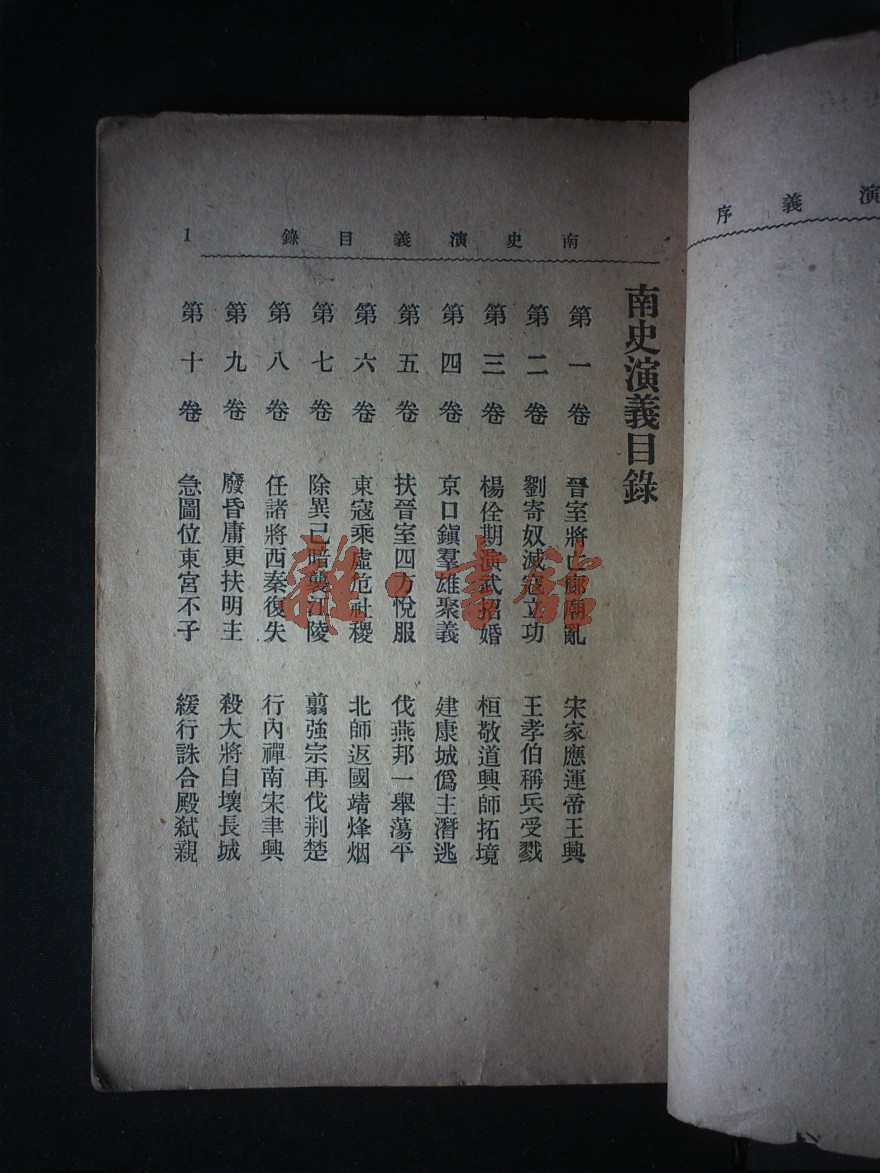 演義序
南史演義目錄 1
南史演義目錄
第一卷 晉室將亡廊廟亂 宋家應運帝王興
第二卷 劉寄奴滅寇立功 王孝伯稱兵受戮
第三卷 楊佺期演武招婚 桓敬道興師拓境
第四卷 京口鎭羣雄聚義 建康城僞主潛逃
第五卷 扶晉室四方悅服 伐燕邦一舉蕩平
第六卷 東寇乘虛危社稷 北師返國靖烽烟
第七卷 除異己暗襲江陵 翦強宗再伐荆楚
第八卷 任諸將西秦復失 行內禪南宋聿興
第九卷 廢昏庸更扶明主 殺大將自壞長城
第十卷 急圖位東宮不子 緩行誅合殿弒親
雜·書館